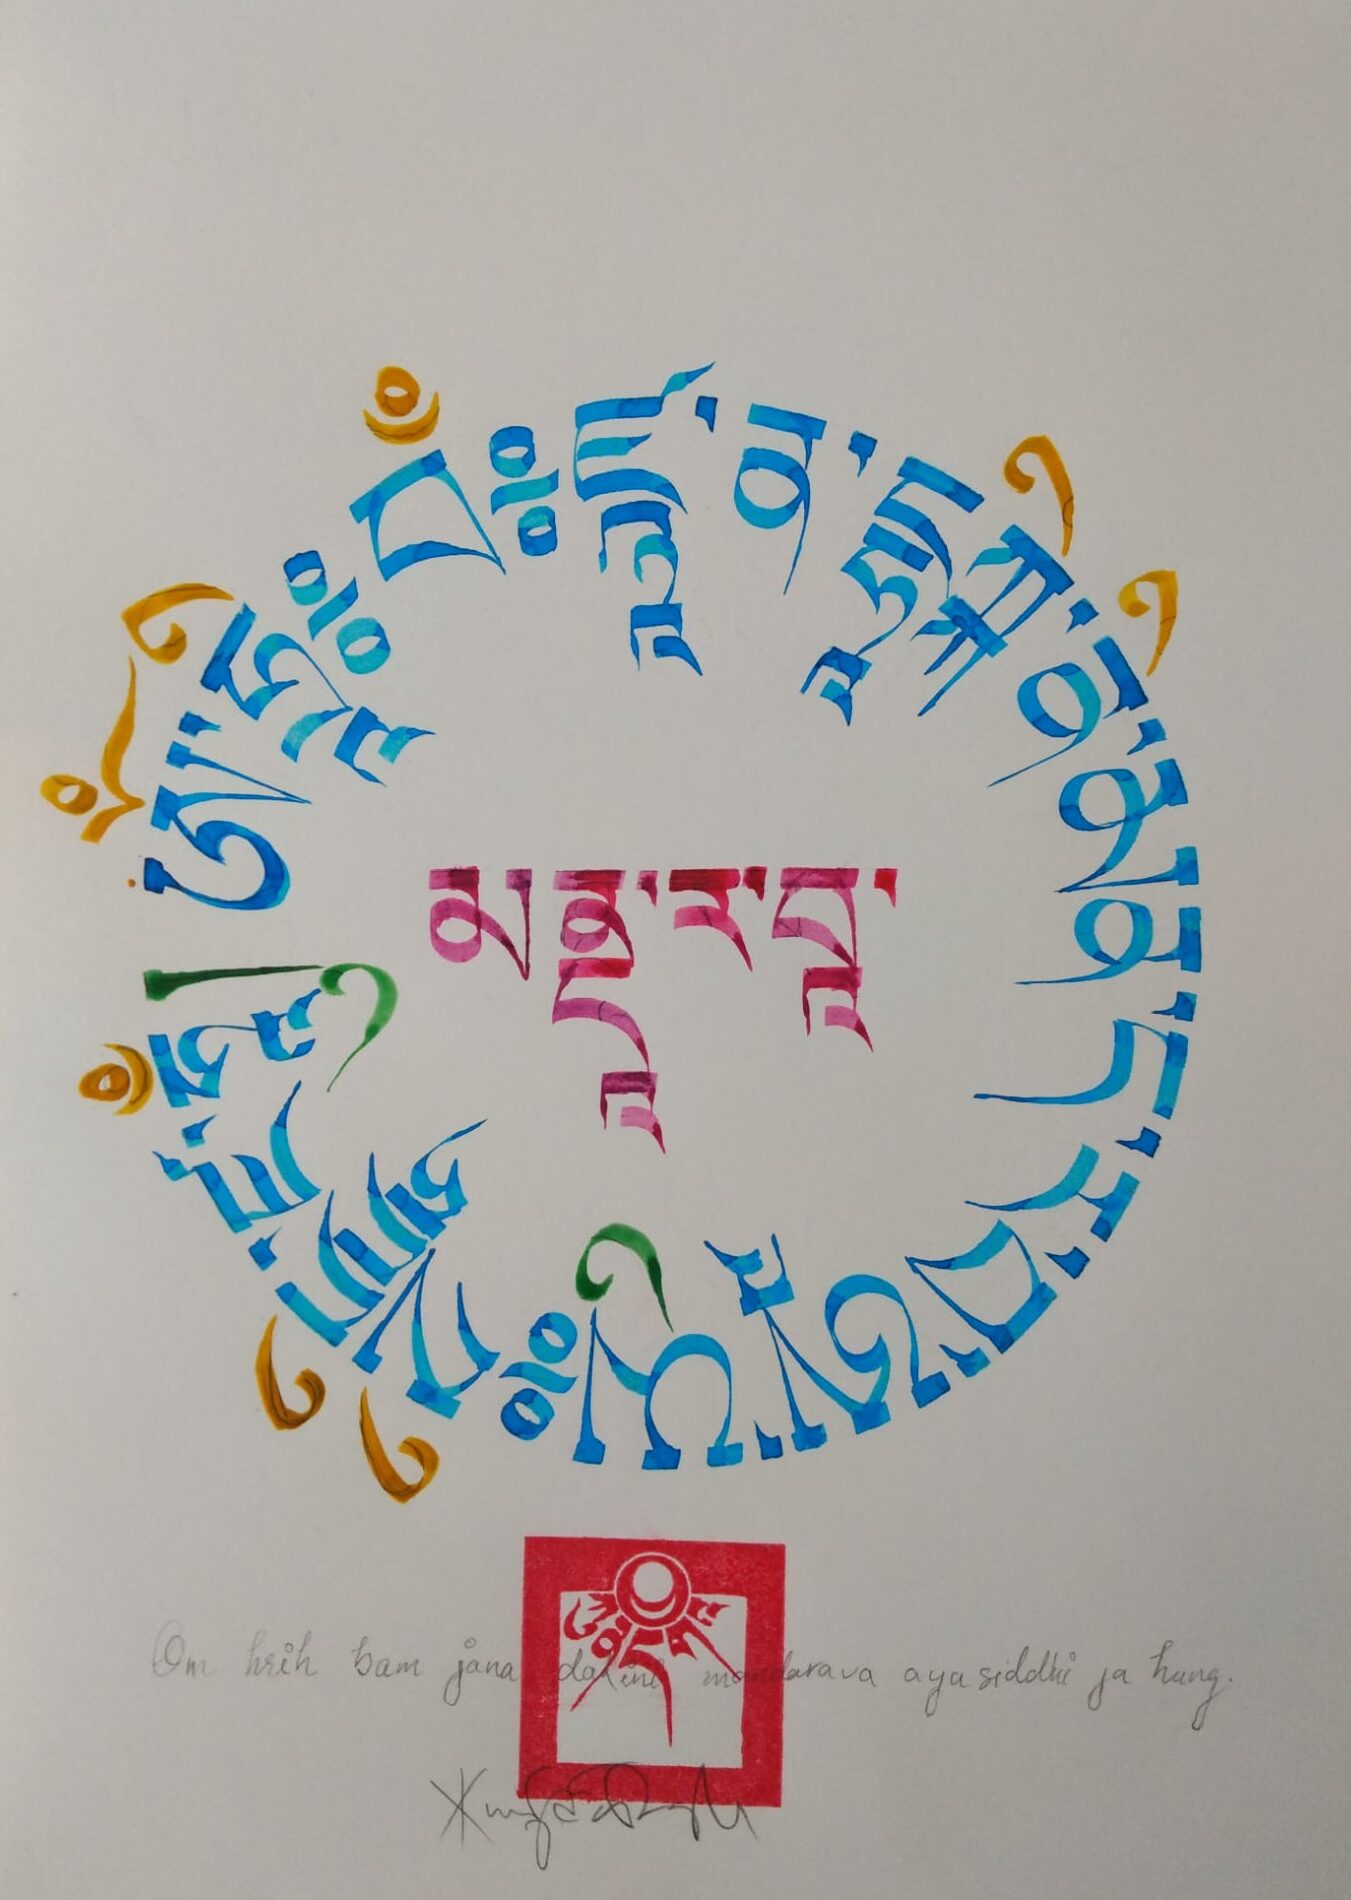 ཨོཾ་ཧྲཱིཿབཾཿཛྙཱ་ན་ཌཱཀྐི་ནི་མནད་ར་བ་ཨཱ་ཡུཿསིདྡྷི་ཛ་ཧཱུཾ།
མནྡཱ་ར་བཱ་
Om hrih bam jana dakini mandarava aya siddhi ja hung.